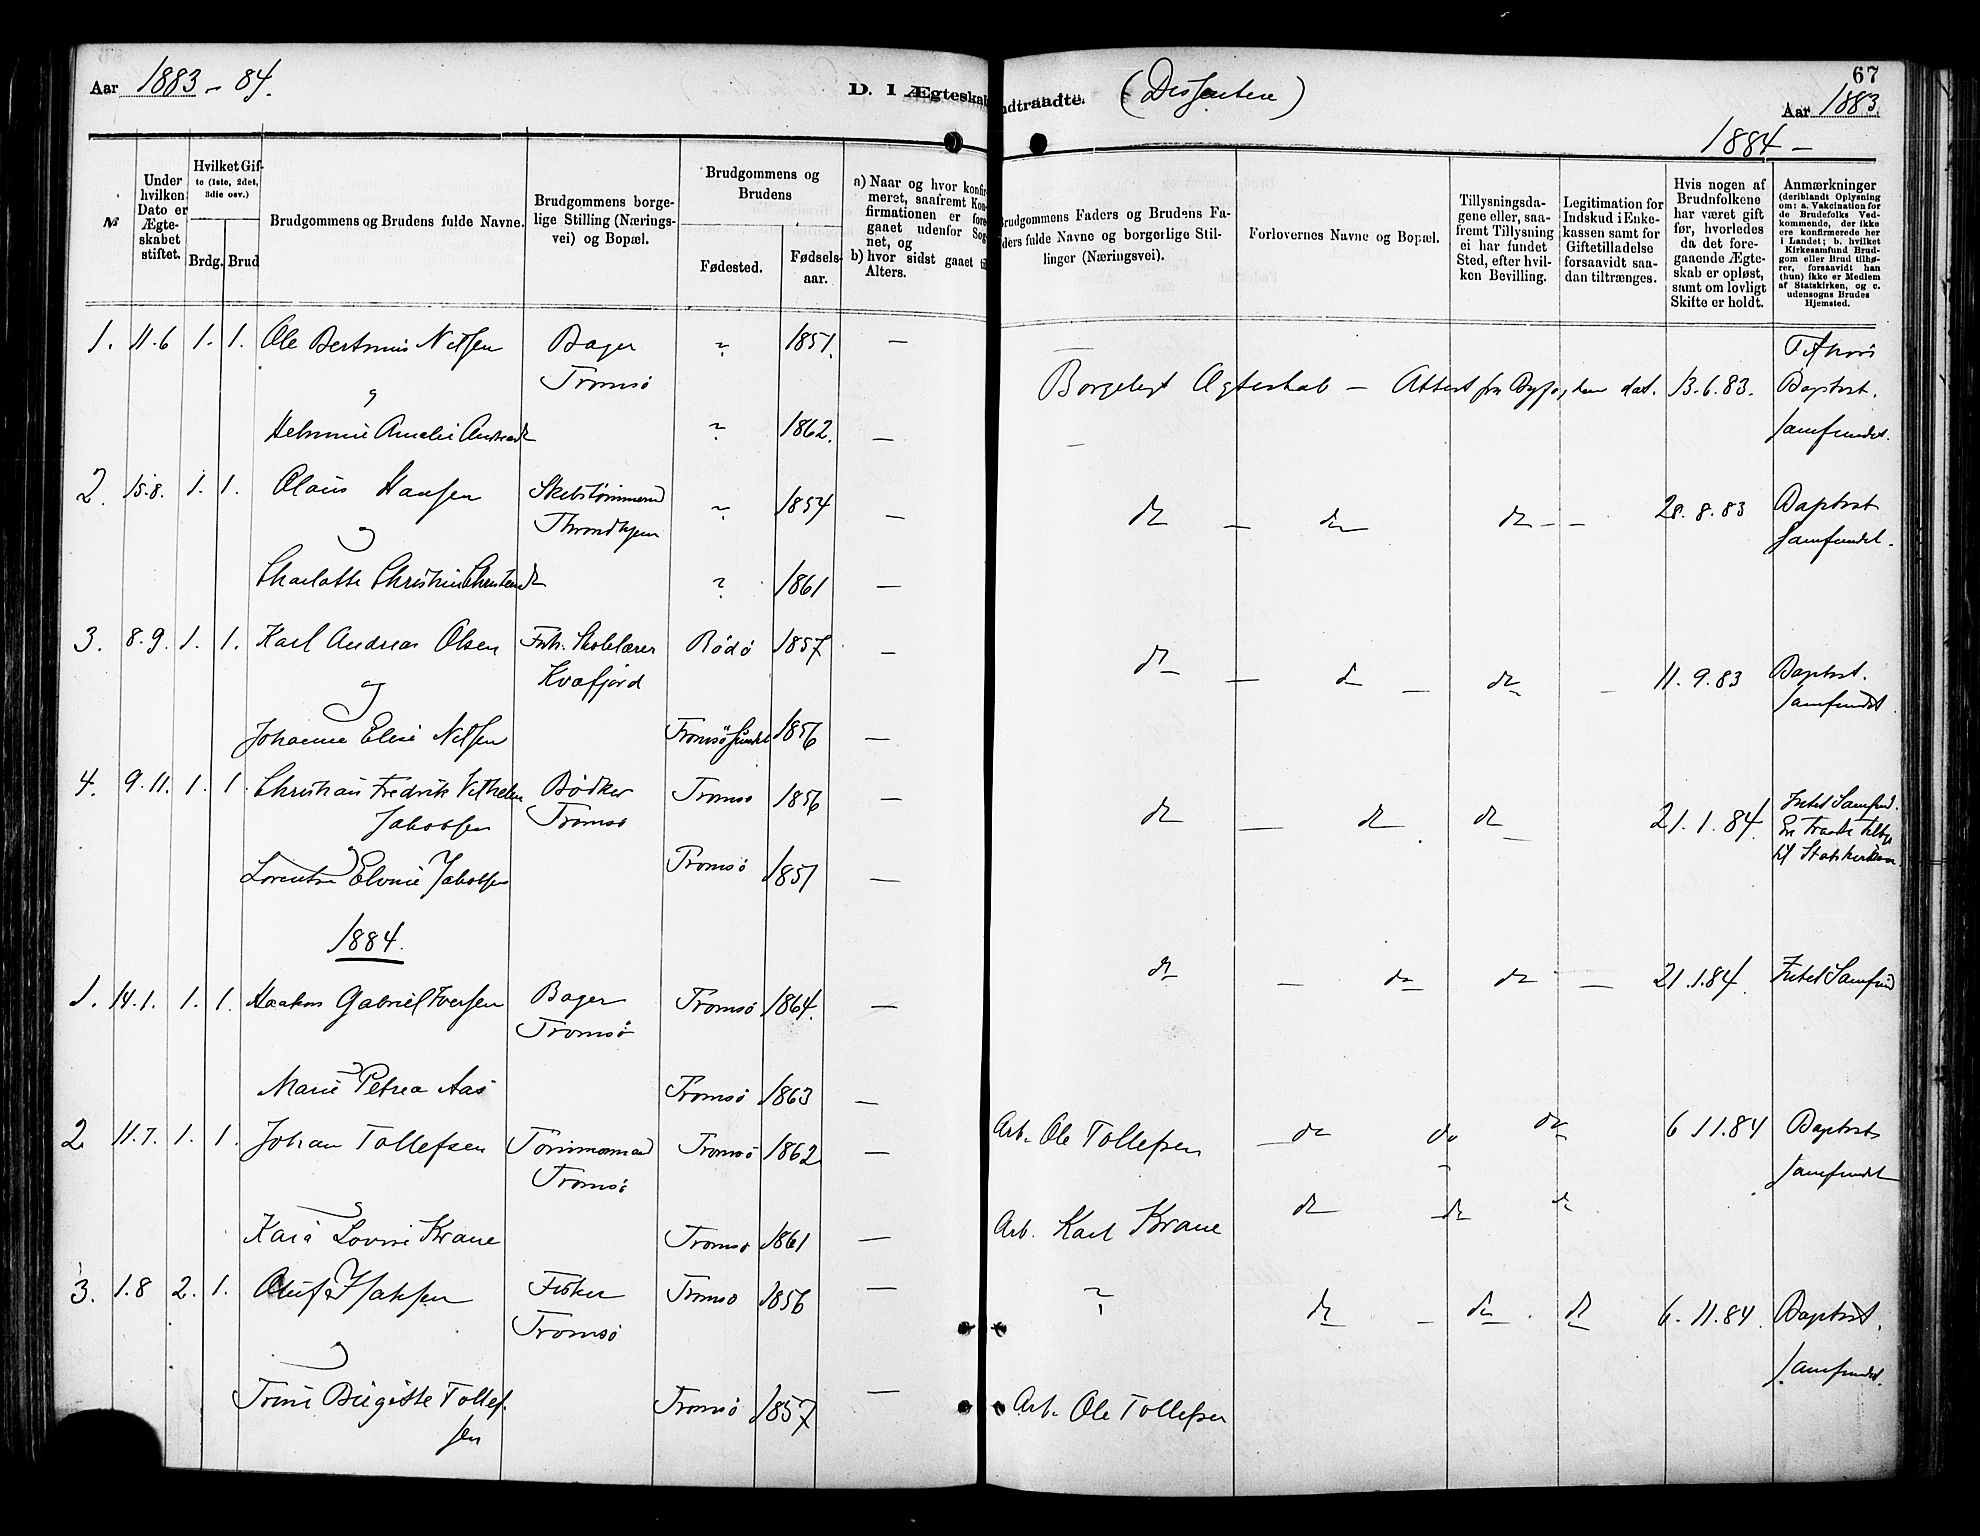 Aar 1883-84.
D. 1 Ægteskab
ndtraadte. (Dissentere)
67
Aar 1883
1884 -
№
Under hvilken Dato er Ægteskabet stiftet.
Hvilket Gifte (1ste, 2det, 3die osv.)
Brdg. Brud
Brudgommens og Brudens fulde Navne.
Brudgommens borgelige Stilling (Næringsvei) og Bopæl.
Brudgommens og Brudens
Fødested.
Fødselsaar.
a) Naar og hvor konfirmeret, saafremt Konfirmationen er foregaaet udenfor Sognet, og
b) hvor sidst gaaet til Alters.
Brudgommens Faders og Brudens Faders fulde Navne og borgerlige Stillinger (Næringsvei).
Forlovernes Navne og Bopæl.
Tillysningsdagene eller, saafremt Tillysning ei har fundet Sted, efter hvilken Bevilling.
Legitimation for Indskud i Enkekassen samt for Giftetilladelse forsaavidt saadan tiltrænges.
Hvis nogen af Brudnfolkene har været gift før, hvorledes da det foregaaende Ægteskab er opløst, samt om lovligt Skifte er holdt.
Anmærkninger (deriblandt Oplysning om: a. Vakcination for de Brudefolks Vedkommende, der ikke ere konfirmerede her i Landet; b. hvilket Kirkesamfund Brudgom eller Brud tilhører, forsaavidt han (hun) ikke er Medlem af Statskirken, og c. udensogns Brudes Hjemsted.
1. 11.6 1. 1. Ole Nilsen Bager ~ 1851. —
Tromsø
Borgeligt Ægteskab — Attest fra Byfo, den dat. 13.6.83. Baptist.
og
Amalie ~ 1862. — Samfundet.
2. 15.8. 1. 1. Olaus Hansen ~ 1854 —
Throndhjem
do — do do - - 28.8.83 Baptist
Samfundet.
og
Charlotte Christine ~ 1861 —
3. 8.9. 1. 1. Karl Andreas Olsen Skolelærer Rödö 1857 —
Kvæfjord
do — do — do — 11.9.83 Baptist.
Samfundet
og
Johanne Elise Nilsen Tromsøsundet 1856 —
4. 9.11. 1. 1. Christian Fredrik Vilhelm Bödker Tromsø 1856 —
Jakobsen Tromsø
do — do do — 21.1.84. Samfund.
til Statskirken
og
Jakobsen Tromsø 1851 —
1884.
1. 14.1. 1. 1. Haakon Gabriel Iversen Bager Tromsø 1864. —
Tromsø
do — do do — 21.1.84. Samfund
og
Marie Petrea Aas Tromsø 1863 —
2 11.7. 1. 1. Johan Tollefsen Tömmermand Tromsø 1862 —
Tromsø
Arb. Ole Tollefsen — do do do 6 11.84 Baptist
Samfundet
og
Lovise Krane Tromsø 1861 — Arb. Karl Krane do do do
3. 1.8 2. 1. Oluf Isaksen Fisker Tromsø 1856 —
Tromsø
~ do — do do 6. 11.84. Baptist.
Samfundet.
og
Trine Birgitte Tollef- Tromsø 1857 — Arb. Ole Tollefsen
sen